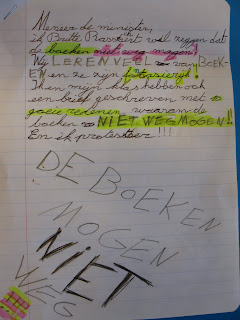 Meneer de minister,
ik Britt wil zeggen dat
de boeken niet weg mogen!
Wij LEREN VEEL van BOEK-
EN en ze zijn fantasierijk!
Ik en mijn klas hebben ook
een brief geschreven met
goeie redenen waarom de
boeken NIET WEG MOGEN!!
En ik protesteer!!!
DE BOEKEN
MOGEN
NIET
WEG
!!!